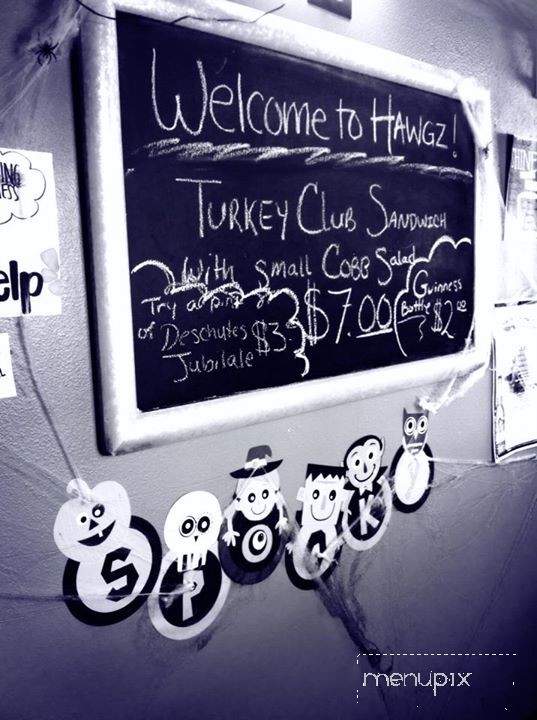 Welcome to HAWGZ!
TURKEY CLUB SANDWICH
With small COBB Salad
$7.00
Try a pint
of Deschutes $3.
Jubilale
Guinness
Bottle $2.00
elp
SPOOKY
menupix